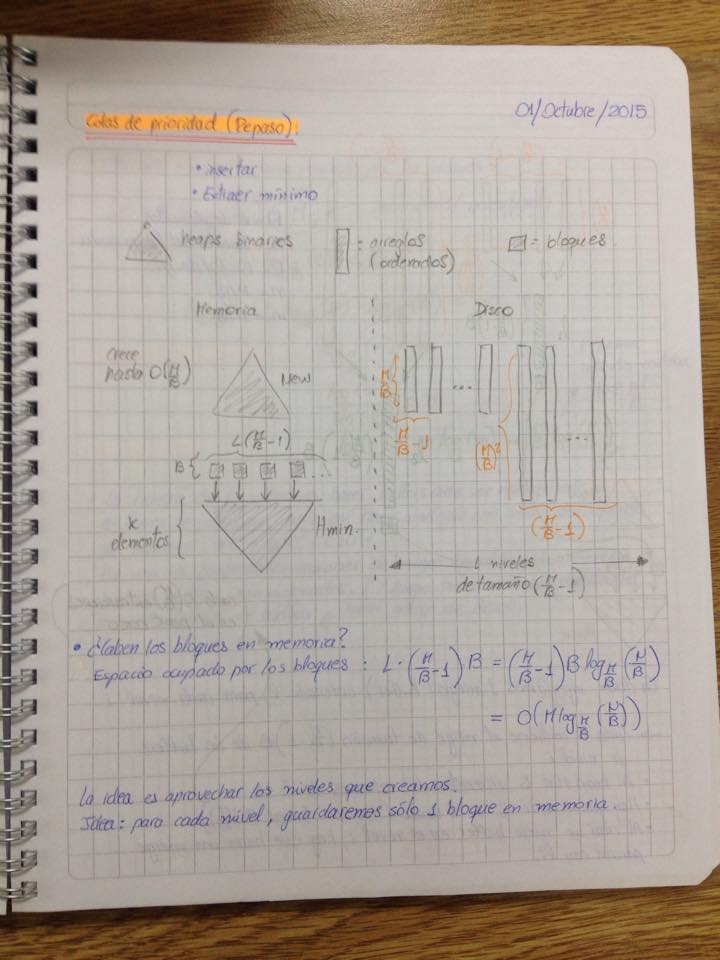 01/Octubre/2015
Colas de prioridad (Repaso).
• insertar
• Extraer mínimo
heaps binarios
= arreglos (ordenados)
= bloques.
Memoria
Disco
crece hasta O(M/B)
New
M/B
M/B - 1
...
(M/B)²
...
(M/B - 1)
L(M/B - 1)
B { ...
k elementos
Hmin.
L niveles
de tamaño (M/B - 1)
• ¿Caben los bloques en memoria?
Espacio ocupado por los bloques: L · (M/B - 1) B = (M/B - 1) B log_{M/B} (N/B)
= O(M log_{M/B} (N/B))
La idea es aprovechar los niveles que creamos.
Idea: para cada nivel, guardaremos sólo 1 bloque en memoria.